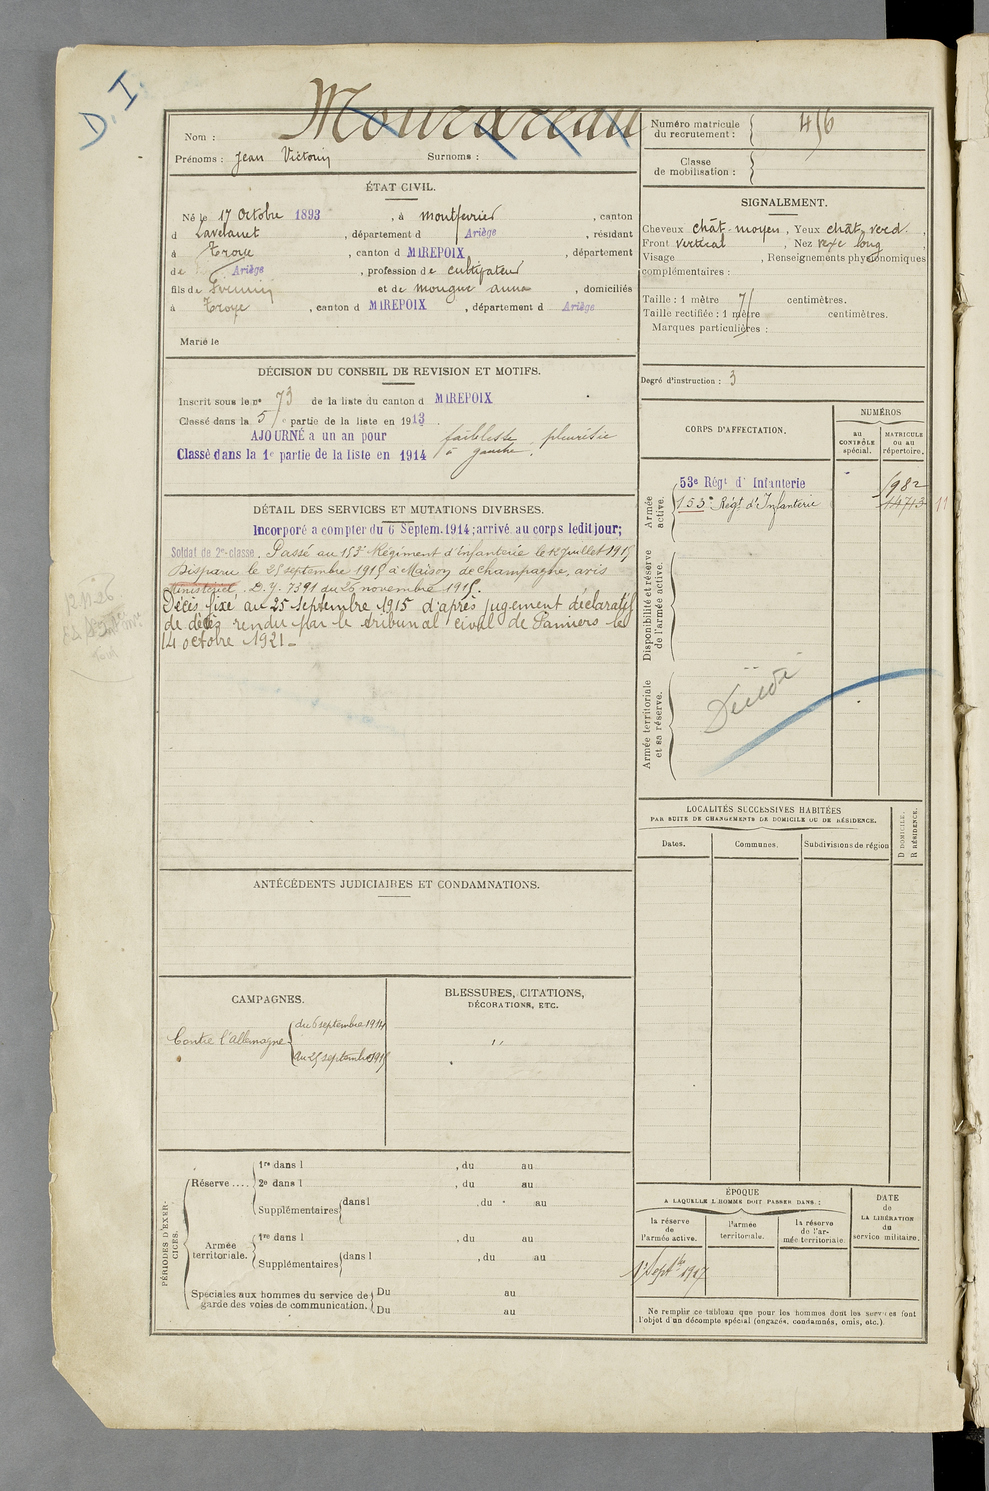 D. I.
Nom : Mouzareau
Prénoms : Jean Victorin Surnoms :
Numéro matricule du recrutement : 456
Classe de mobilisation :
ÉTAT CIVIL.
Né le 17 Octobre 1893, à montferrier, canton
d Lavelanet, département d Ariège, résidant
à Troye, canton d MIREPOIX, département
de Ariège, profession de cultivateur
fils de et de mougue anna, domiciliés
à Troye, canton d MIREPOIX, département d Ariège
Marié le
SIGNALEMENT.
Cheveux chât-moyen, Yeux chât. verd.,
Front vertical, Nez long
Visage , Renseignements physionomiques
complémentaires :
Taille : 1 mètre 71 centimètres.
Taille rectifiée : 1 mètre centimètres.
Marques particulières :
Degré d'instruction : 3
DÉCISION DU CONSEIL DE REVISION ET MOTIFS.
Inscrit sous le n° 73 de la liste du canton d MIREPOIX
Classé dans la 5e partie de la liste en 1913.
AJOURNÉ a un an pour faiblesse, pleurésie
Classé dans la 1e partie de la liste en 1914 à gauche.
DÉTAIL DES SERVICES ET MUTATIONS DIVERSES.
Incorporé a compter du 6 Septem. 1914; arrivé au corps ledit jour;
Soldat de 2e classe. Passé au 153e Régiment d'Infanterie le 12 juillet 1915
Disparu le 25 septembre 1915 à Maison de Champagne, avis
Ministériel, D.Y. 7391 du 26 novembre 1915.
Décès fixé au 25 Septembre 1915 d'après jugement déclaratif
de décès rendu par le tribunal civil de Pamiers le
14 octobre 1921.
CORPS D'AFFECTATION.
NUMÉROS
au CONTRÔLE spécial.
MATRICULE ou au répertoire.
Armée active.
53e Régt d' Infanterie
982
153e Régt d'Infanterie 14713 11
Disponibilité et réserve de l'armée active.
Armée territoriale et sa réserve.
Décédé
LOCALITÉS SUCCESSIVES HABITÉES
PAR SUITE DE CHANGEMENTS DE DOMICILE OU DE RÉSIDENCE.
Dates.
Communes.
Subdivisions de région
D DOMICILE.
R RÉSIDENCE.
ANTÉCÉDENTS JUDICIAIRES ET CONDAMNATIONS.
CAMPAGNES.
Contre l'Allemagne
du 6 septembre 1914
au 25 septembre 1915
BLESSURES, CITATIONS,
DÉCORATIONS, ETC.
"
PÉRIODES D'EXERCICES.
Réserve ....
1re dans l , du au
2e dans l , du au
Supplémentaires dans l , du au
Armée territoriale.
1re dans l , du au
Supplémentaires dans l , du au
Spéciales aux hommes du service de garde des voies de communication.
Du au
Du au
ÉPOQUE
A LAQUELLE L'HOMME DOIT PASSER DANS :
la réserve de l'armée active.
l'armée territoriale.
la réserve de l'armée territoriale
DATE de LA LIBÉRATION du service militaire.
1er Septbre 1917
Ne remplir ce tableau que pour les hommes dont les services font
l'objet d'un décompte spécial (engagés, condamnés, omis, etc.)